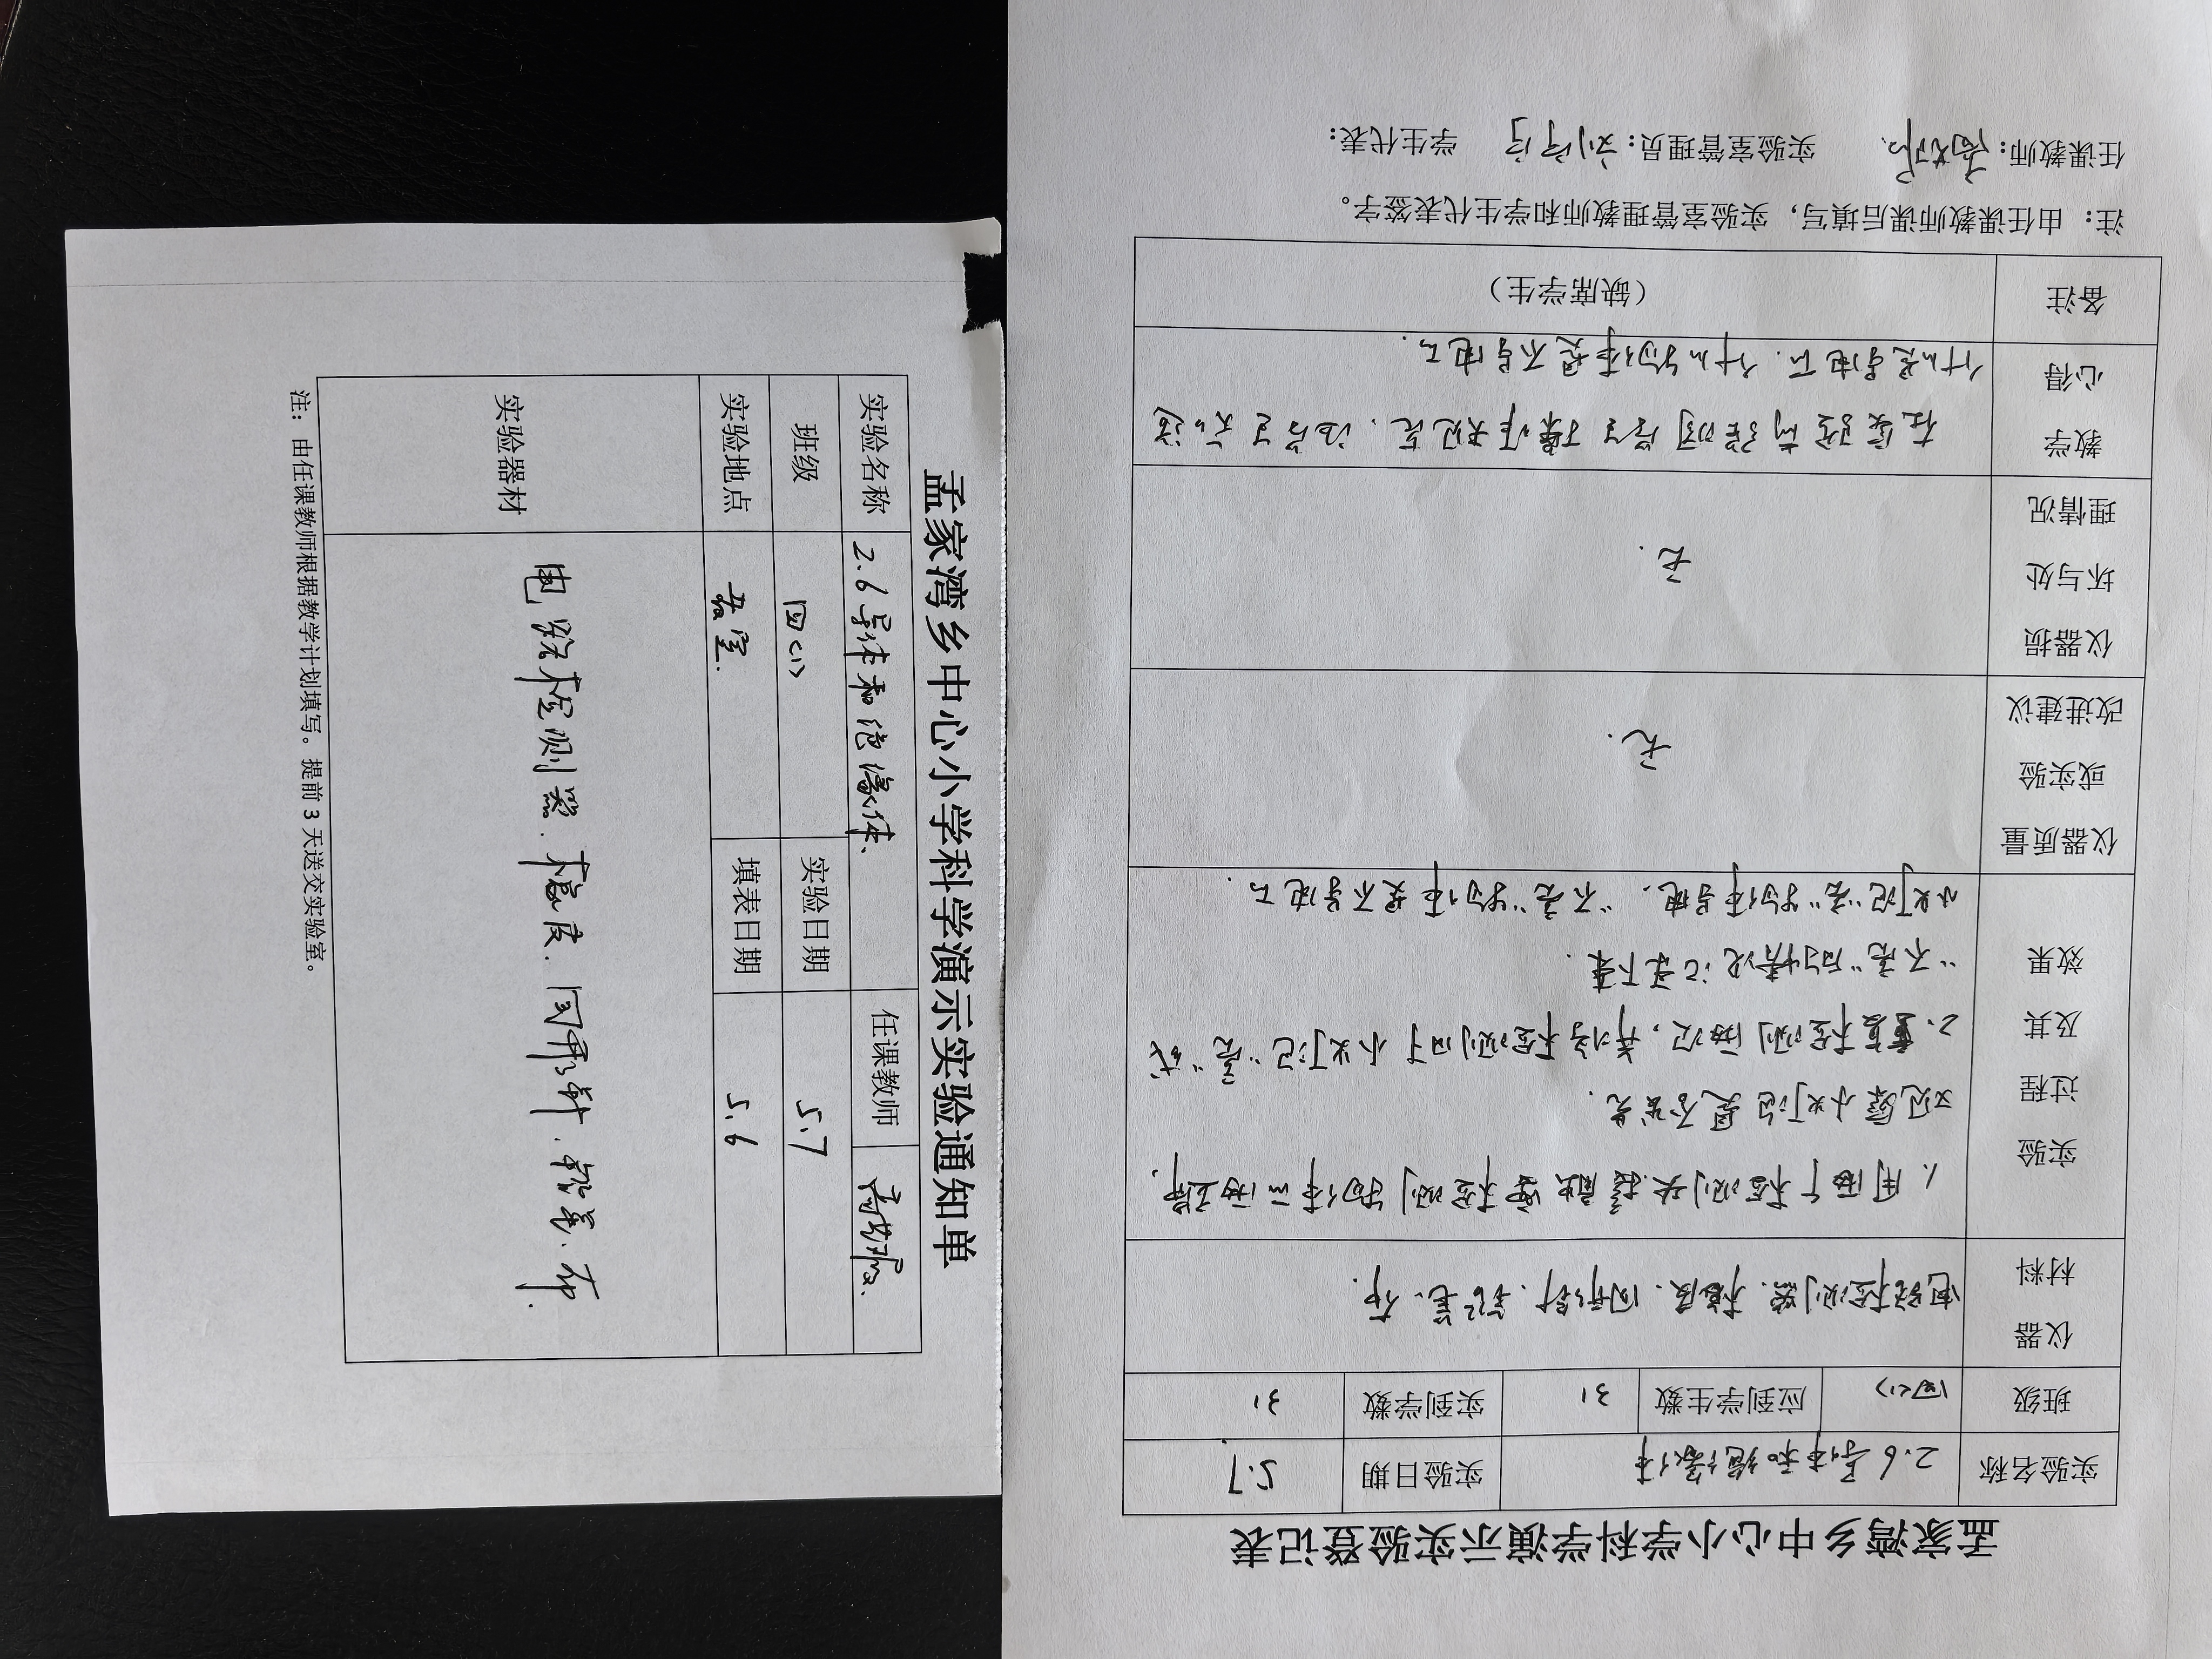 孟家湾乡中心小学科学演示实验通知单
实验名称 2.6导体和绝缘体. 任课教师
班级 四(1) 实验日期 5.7
实验地点 教室. 填表日期 5.6
实验器材 电路检测器. 橡皮. 回形针. 铅笔. 布.
注：由任课教师根据教学计划填写。提前 3 天送交实验室。
孟家湾乡中心小学科学演示实验登记表
实验名称 2.6导体和绝缘体 实验日期 5.7
班级 四(1) 应到学生数 31 实到学数 31
仪器材料 电路检测器. 橡皮. 回形针. 铅笔. 布.
实验过程及其效果
1. 用两个检测头接触被检测物体的两端.
观察小灯泡是否发光.
2. 重复检测两次, 并将检测时了小灯泡“亮”或
“不亮”的情况记录下来.
小灯泡“亮”物体导电. “不亮”物体是不导电的.
仪器质量或实验改进建议 无.
仪器损坏与处理情况 无.
教学心得
在实验前强调了操作规范. 让学生知道
什么是导电的. 什么物体是不导电的.
备注 （缺席学生）
注：由任课教师课后填写，实验室管理教师和学生代表签字。
任课教师： 实验室管理员： 学生代表：